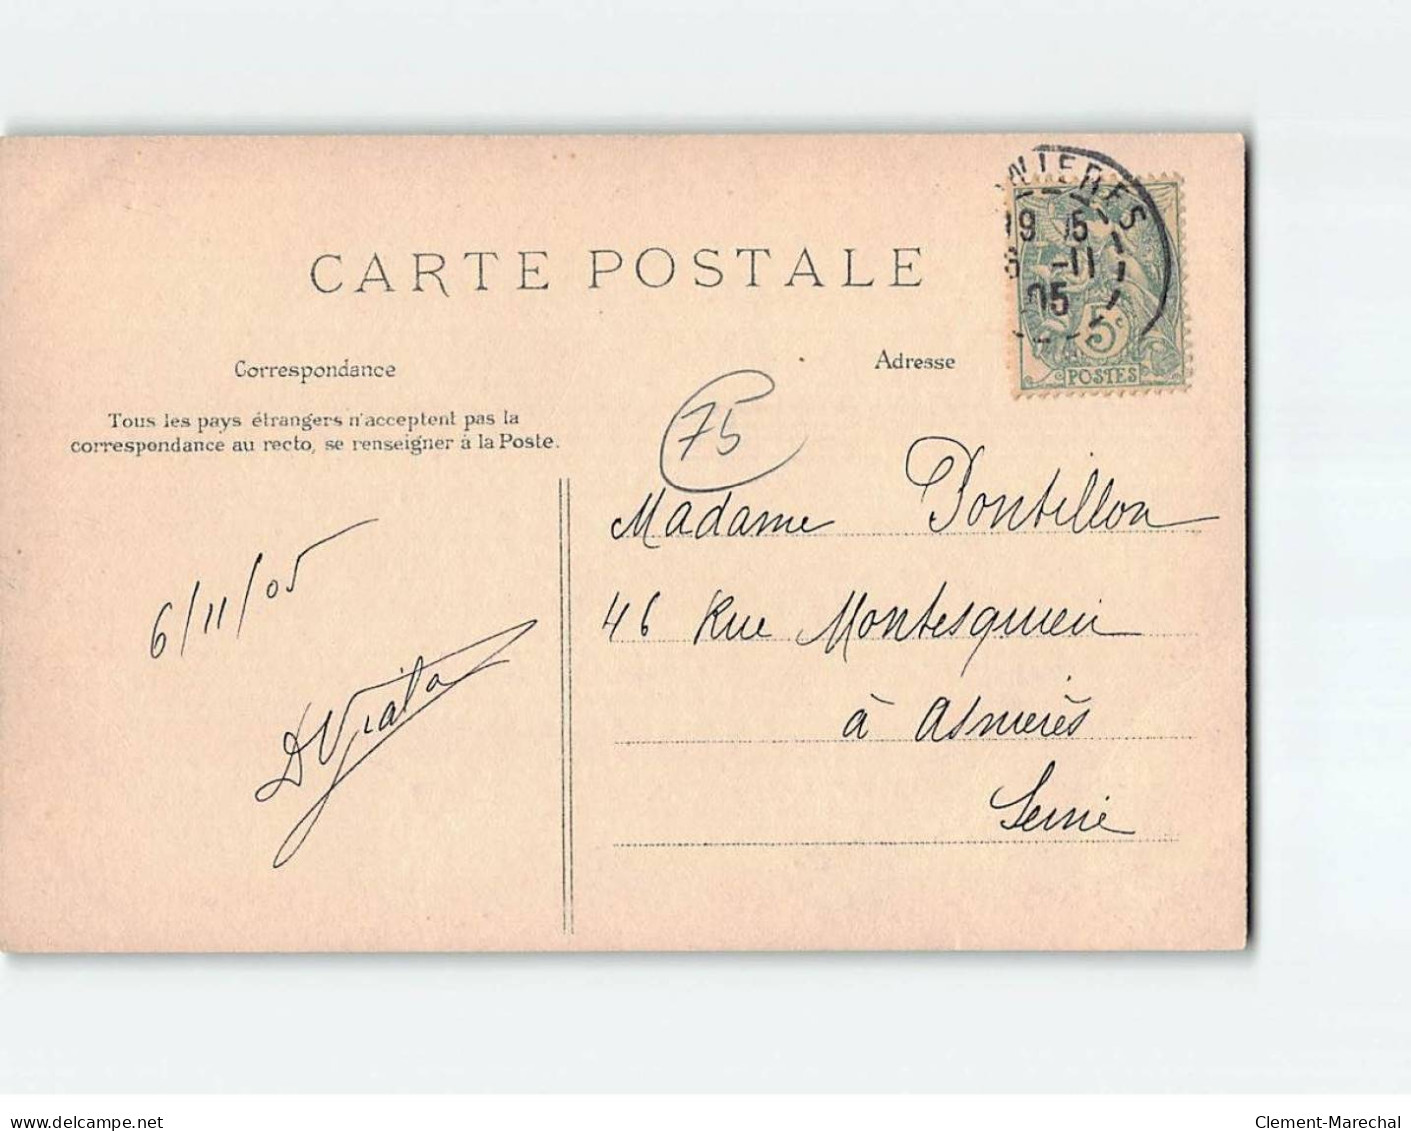 NIERES
19 15
6 -11
05
5c
POSTES
CARTE POSTALE
Correspondance
Adresse
Tous les pays étrangers n'acceptent pas la
correspondance au recto, se renseigner à la Poste.
75
Madame Pontillon
46 Rue Montesquieu
à Asnières
Seine
6/11/05
delcampe.net
Clement-Marechal